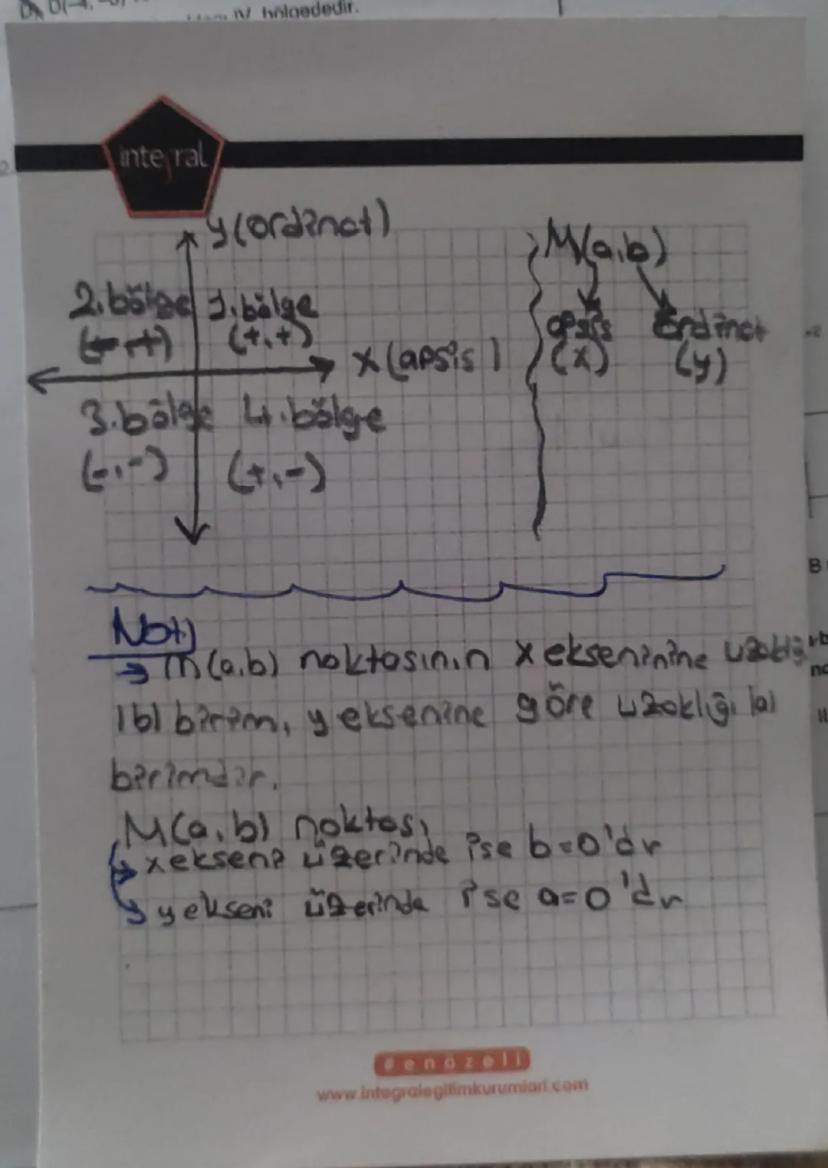 IV. bölgededir.
integral
y(ordinat)
2.bölge 1.bölge
(-,+) (+,+)
x(apsis)
3.bölge 4.bölge
(-,-) (+,-)
M(a,b)
apsis ordinat
(x) (y)
Not:)
→ M(a,b) noktasının x eksenimine uzaklığı
|b| birim, y eksenine göre uzaklığı |a|
birimdir.
M(a,b) noktası
→ x ekseni üzerinde ise b=0'dır
→ y ekseni üzerinde ise a=0'dır
#enözeli
www.integralegitimkurumlari.com